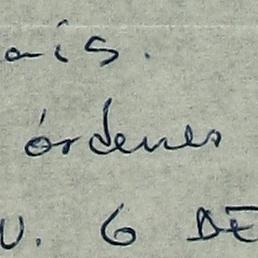 ais.
órdenes
V. 6 DE